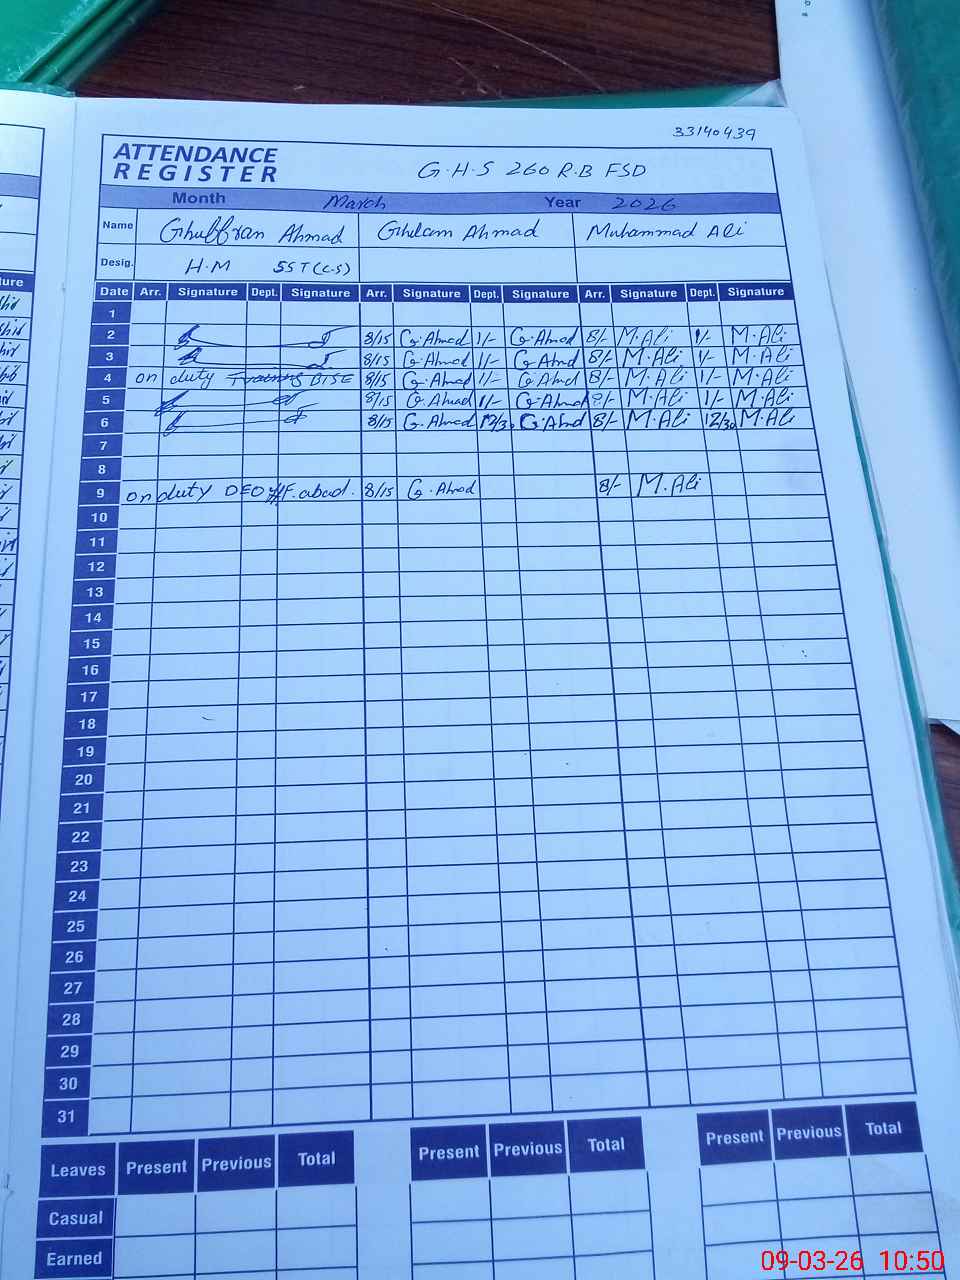 33140439
ATTENDANCE
REGISTER
G.H.S 260 R.B FSD
Month March Year 2026
Name Ghuffran Ahmad Ghulam Ahmad Muhammad Ali
Desig. H.M SST(C.S)
Date Arr. Signature Dept. Signature Arr. Signature Dept. Signature Arr. Signature Dept. Signature
1
2 8/15 G.Ahmad 1/- G.Ahmad 8/- M.Ali 1/- M.Ali
3 8/15 G.Ahmad 1/- G.Ahmd 8/- M.Ali 1/- M.Ali
4 on duty Training BISE 8/15 G.Ahmad 1/- G.Ahmd 8/- M.Ali 1/- M.Ali
5 8/15 G.Ahmad 1/- G.Ahmd 8/- M.Ali 1/- M.Ali
6 8/15 G.Ahmad 12/30 G.Ahmd 8/- M.Ali 12/30 M.Ali
7
8
9 on duty DEO F.abad. 8/15 G.Ahmd 8/- M.Ali
10
11
12
13
14
15
16
17
18
19
20
21
22
23
24
25
26
27
28
29
30
31
Leaves Present Previous Total Present Previous Total Present Previous Total
Casual
Earned
09-03-26 10:50